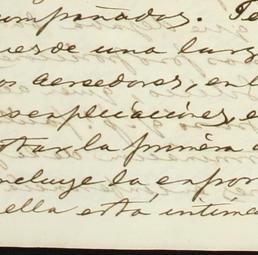 ompañados. Te
uerde una larg
os acreedores, en l
s esplicaciones, e
otar la primera
cluye la espor
ella está íntima